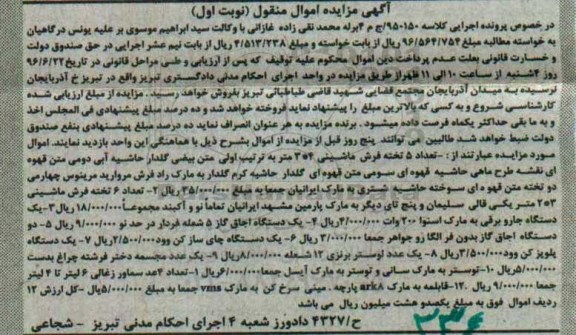 آگهی مزایده اموال منقول (نوبت اول)
در خصوص پرونده اجرایی کلاسه ۹۵۰۱۵۰/ج م ۴ برله محمد نقی زاده غازانی با وکالت سید ابراهیم موسوی بر علیه یونس درگاهیان
به خواسته مطالبه مبلغ ۹۶/۵۶۴/۷۵۴ ریال از بابت خواسته و مبلغ ۴/۵۱۳/۲۳۸ ریال از بابت نیم عشر اجرایی در حق صندوق دولت
و خسارت قانونی بعلت عدم پرداخت دین اموال محکوم علیه توقیف که پس از ارزیابی و طی مراحل قانونی در تاریخ ۹۶/۶/۲۲
روز ۴شنبه از ساعت ۱۰ الی ۱۱ ظهر از طریق مزایده در واحد اجرای احکام مدنی دادگستری تبریز واقع در تبریز خ آذربایجان
نرسیده به میدان آذربایجان مجتمع قضایی شهید قاضی طباطبائی تبریز بفروش خواهد رسید. مزایده از مبلغ ارزیابی شده
کارشناسی شروع و به کسی که بالاترین مبلغ را پیشنهاد نماید فروخته خواهد شد و ده درصد مبلغ پیشنهادی فی المجلس اخذ
و به ما بقی حداکثر یکماه فرصت داده میشود. برنده مزایده به هر عنوان انصراف نماید ده درصد مبلغ پیشنهادی بنفع صندوق
دولت ضبط خواهد شد طالبین می توانند پنج روز قبل از مزایده از اموال بشرح ذیل با هماهنگی این واحد بازدید نمایند. اموال
مورد مزایده عبارتند از : ۱-تعداد ۵ تخته فرش ماشینی ۳*۴ متر به ترتیب اولی متن بیضی گلدار حاشیه آبی دومی متن قهوه
ای نقشه طرح ماهی حاشیه قهوه ای سومی متن قهوه ای گلدار حاشیه کرم گلدار به مارک راد فرش مروارید مرینوس چهارمی
دو تخته متن قهوه ای سوخته حاشیه شتری به مارک ایرانیان جمعا به مبلغ ۳۵/۰۰۰/۰۰۰ ریال ۲- تعداد ۶ تخته فرش ماشینی
۲*۳ متر یکی قالی سلیمان و پنج تای دیگر به مارک پارمین مشهد ایرانیان تماما نو و آکبند مجموعاً ۱۸/۰۰۰/۰۰۰ ریال ۳-یک
دستگاه جارو برقی به مارک اسنوا ۲۰۰ وات ۴/۰۰۰/۰۰۰ ریال ۴- یک دستگاه اجاق گاز ۵ شعله فردار در حد نو ۹/۰۰۰/۰۰۰ ریال ۵- دو
دستگاه اجاق گاز بدون فر الگا زو جواهر جمعا ۳/۰۰۰/۰۰۰ ریال ۶- یک دستگاه چای ساز کن وود ۲/۵۰۰/۰۰۰ ریال ۷- یک دستگاه
پلوپز کن وود ۳/۵۰۰/۰۰۰ ریال ۸- یک عدد لوستر برنزی ۱۲ شعله ۸/۰۰۰/۰۰۰ ریال ۹- یک عدد مجسمه دختر فرشته چراغ بدست
۵/۰۰۰/۰۰۰ ریال ۱۰-توستر به مارک سانی و توستر به مارک آیسل جمعا ۶/۰۰۰/۰۰۰ ریال ۱۱-تعداد ۴عد سماور زغالی ۶ لیتر تا ۴ لیتر
جمعا ۹/۰۰۰/۰۰۰ ریال ۱۲-قابلمه به مارک ark8 پارچه . مینی سرخ کن به مارک vms جمعا به مبلغ ۵/۰۰۰/۰۰۰ ریال -کل ارزش ۱۲
ردیف اموال فوق به مبلغ یکصدو هشت میلیون ریال می باشد
ح/۴۳۲۷ دادورز شعبه ۴ اجرای احکام مدنی تبریز - شجاعی